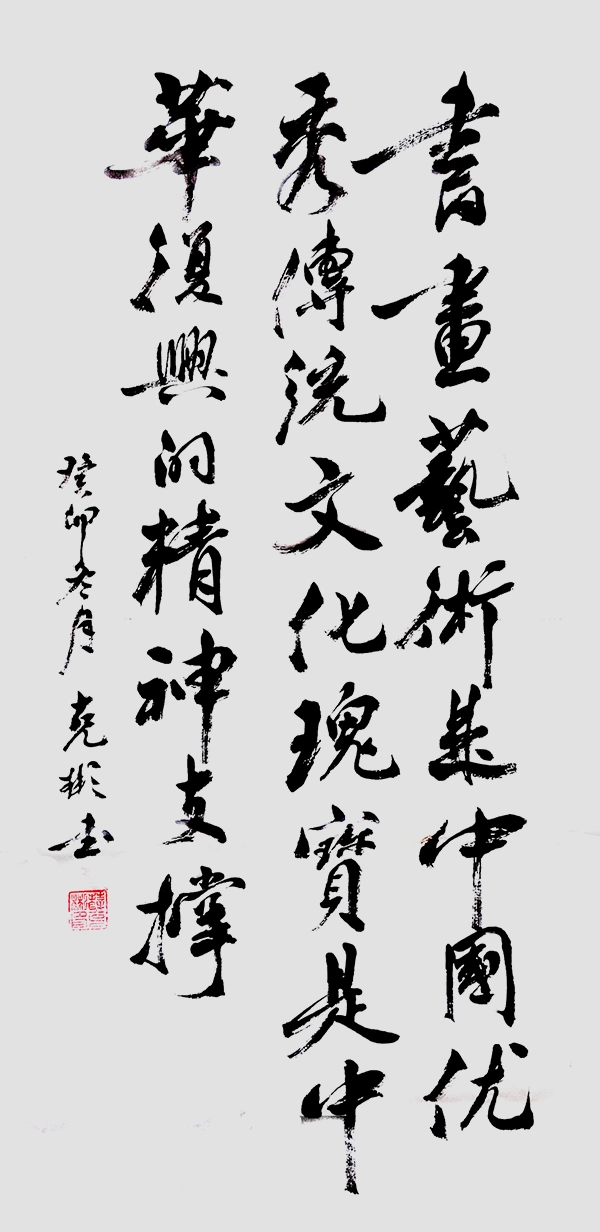 書畫藝術是中國优
秀傳統文化瑰寶是中
華復興的精神支撑
癸卯冬月克彬书